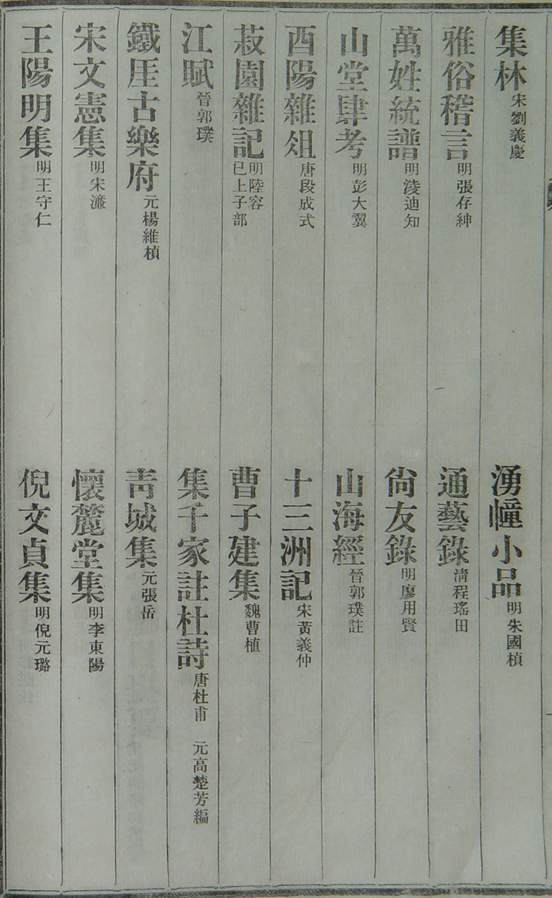 集林 宋劉義慶 湧幢小品 明朱國楨
雅俗稽言 明張存紳 通藝錄 清程瑤田
萬姓統譜 明淩迪知 尙友錄 明廖用賢
山堂肆考 明彭大翼 山海經 晉郭璞註
酉陽雜俎 唐段成式 十三洲記 宋黃義仲
菽園雜記 明陸容 已上子部 曹子建集 魏曹植
江賦 晉郭璞 集千家註杜詩 唐杜甫 元高楚芳編
鐵厓古樂府 元楊維楨 靑城集 元張岳
宋文憲集 明宋濂 懷麓堂集 明李東陽
王陽明集 明王守仁 倪文貞集 明倪元璐